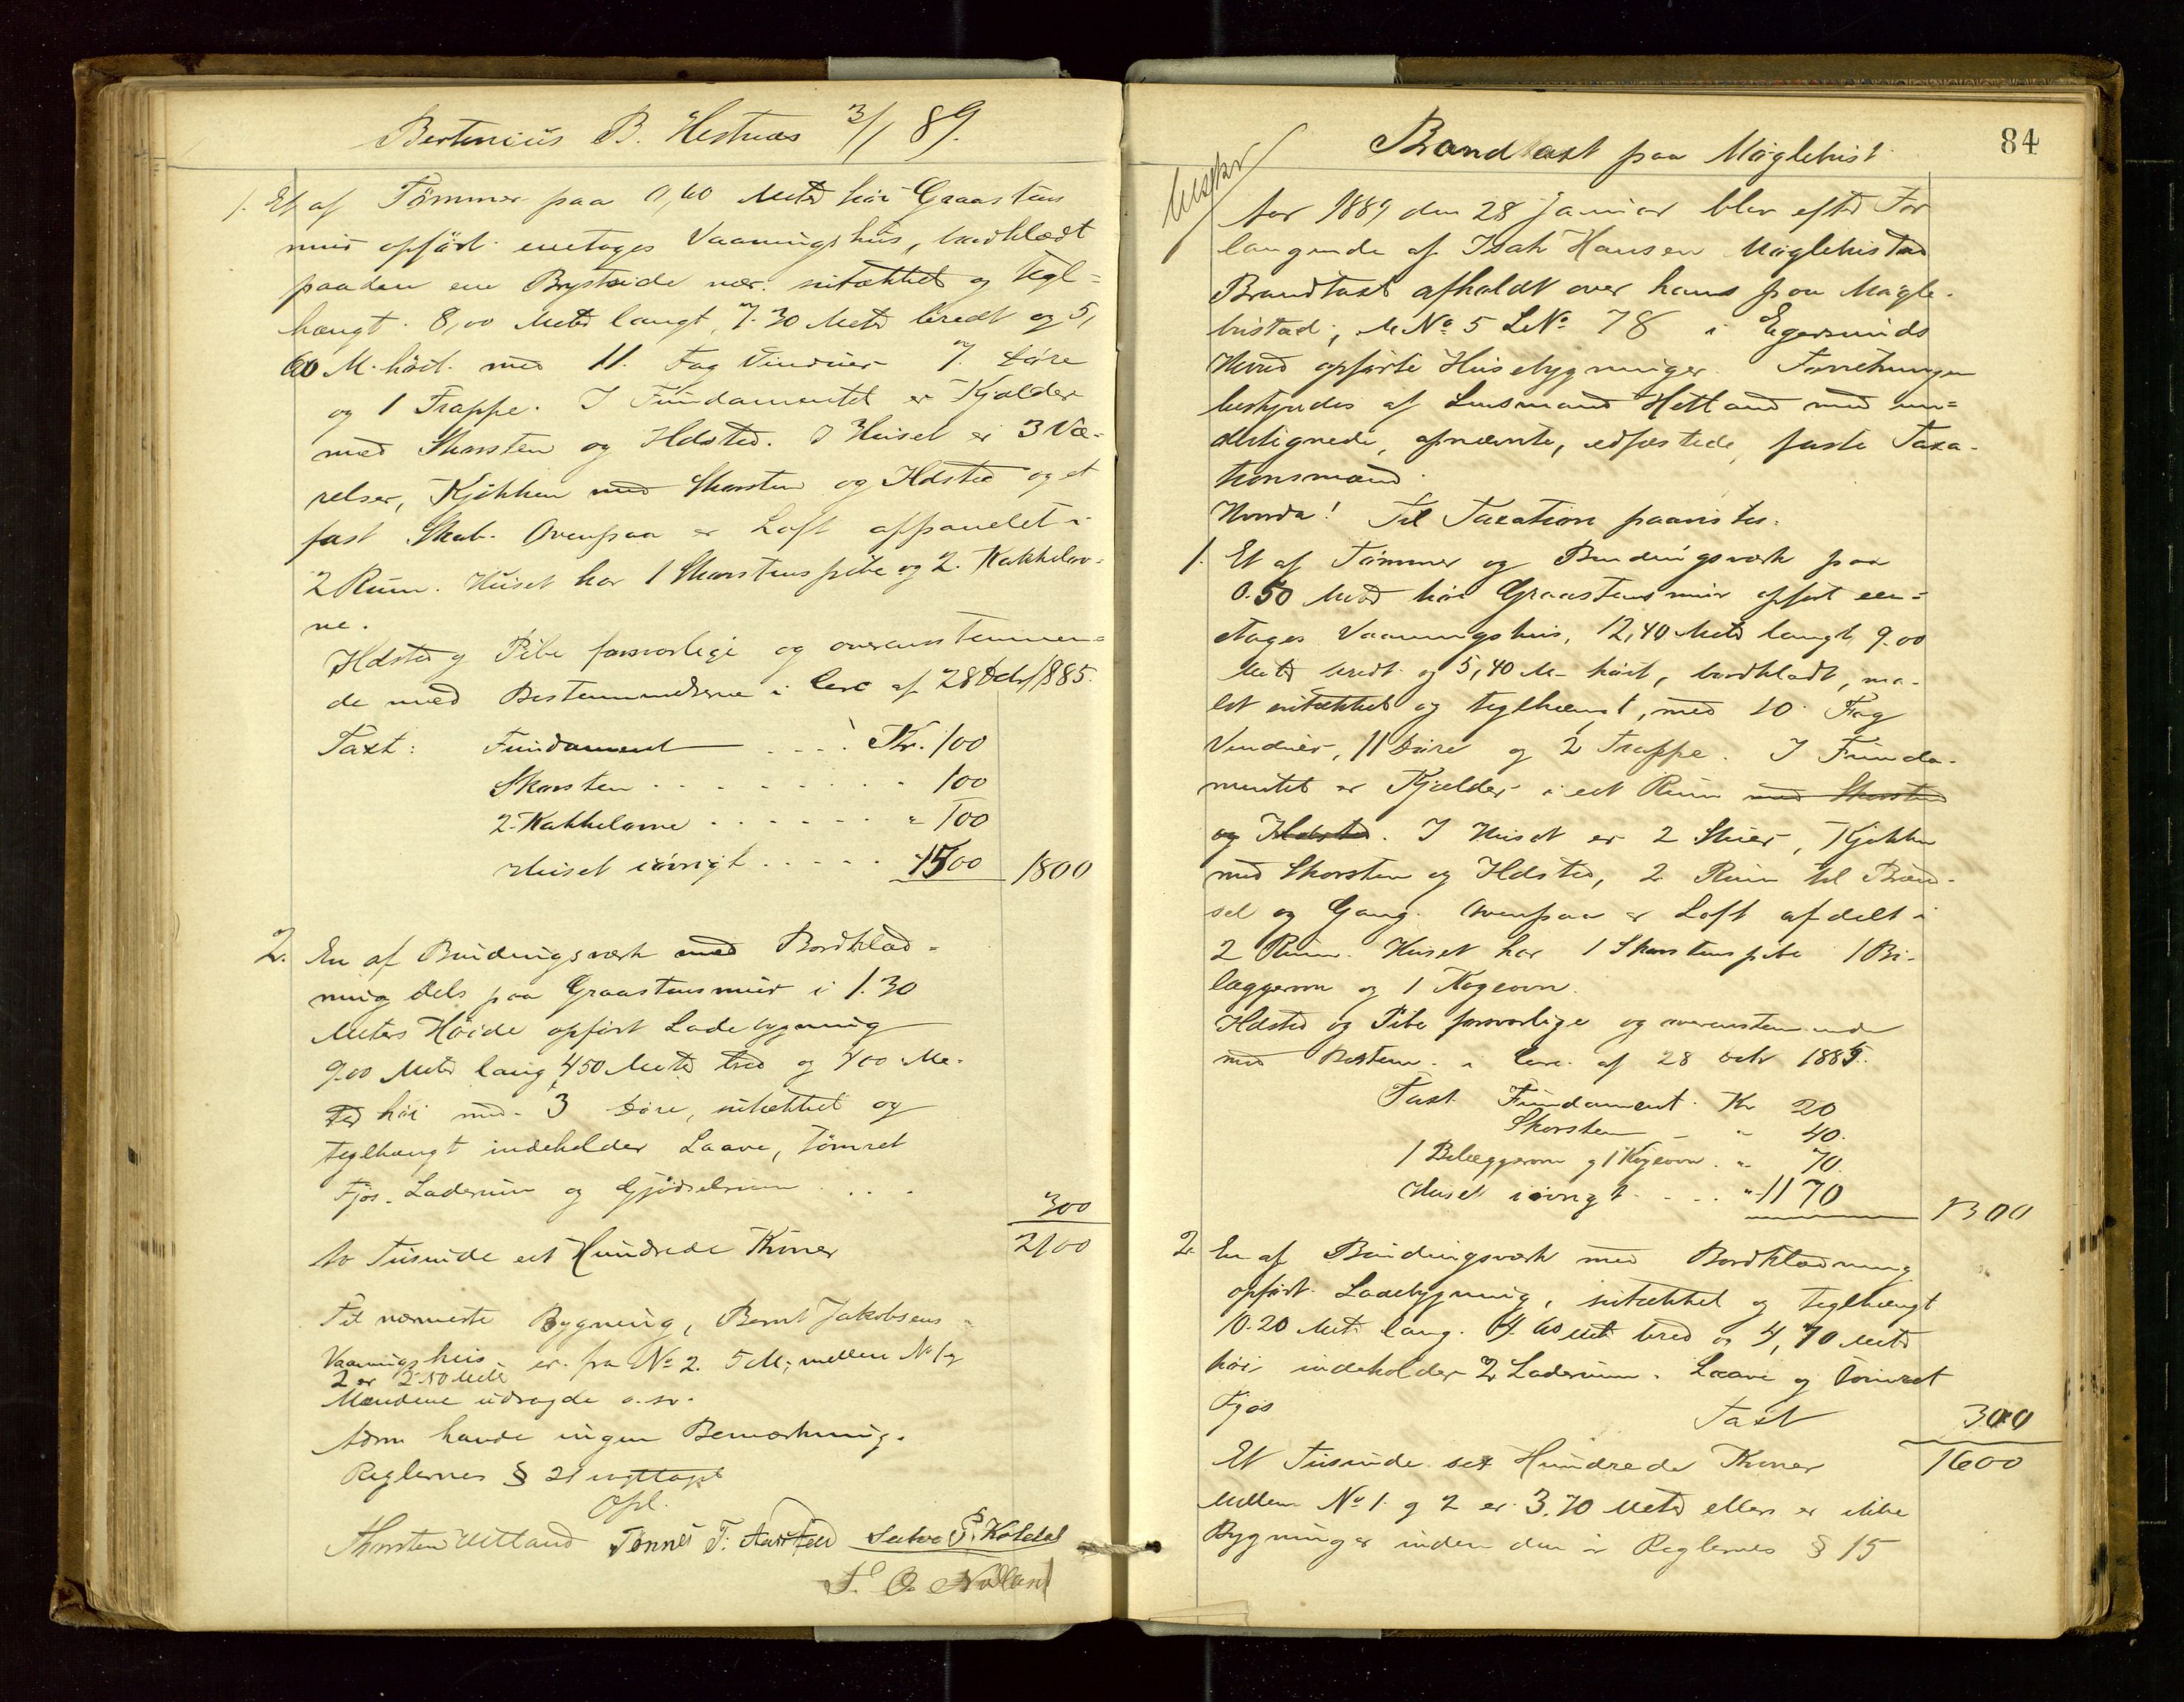 Bertinius B. Hestnæs 3/1 89.
1. Et af Tømmer paa 0,60 Meter høi Graastens
mur opført enetages Vaaningshus, bordklædt
paa den ene Brystside nær. nitækket og tegl=
hængt. 8,00 Meter langt, 7.30 Meter bredt og 5,
60 M. høit. med 11. Fag Vinduer 7. Døre
og 1 Trappe. I Fundamentet er Kjælder
med Skorsten og Ildsted. I Huset er 3 Væ-
relser, Kjøkken med Skorsten og Ildsted og et
fast Skab. Ovenpaa er Loft afpanelet i
2 Rum. Huset har 1 Skorstenspibe og 2. Kakkelov-
ne.
Ildsted og Pibe forsvarlige og overensstemmen=
de med Bestemmelserne i Circ af 28 Octr 1885.
Taxt: Fundament - - - Kr. 100
Skorsten - - - - 100
2. Kakkelovne - - - - " 100
Huset iøvrigt - - - - 1500 1800
2. En af Bindingsværk med Bordklæd-
ning dels paa Graastensmur i 1.30
Meters Høide opført Ladebygning
9.00 Meter lang, 4,50 Meter bred og 4,00 Me-
ter høi med 3 Døre, nitækket og
teglhængt indeholder Laave, tømret
Fjøs. Laderum og Gjødselrum . . . 300
to Tusinde et Hundrede Kroner 2100
Til nærmeste Bygning, Bernt Jakobsens
Vaaningshus er fra No 2. 5 M; mellem No 1 og
2 er 2.50 Meter
Mændene udsagde o. sv.
Adm havde ingen Bemærkning.
Reglernes § 21 iagttaget
Opl.
Thorsten Hetland Tønnes T. Aarstad Salve P. Koldal
T. O. Nodland
84
Brandtaxt paa Møglebust
Aar 1889 den 28 Januar blev efter For
langende af Isak Hansen Møglebustad
Brandtaxt afholdt over hans paa Møgle-
bustad, M No 5 L No 78 i Egersunds
Herred opførte Husebygninger. Forretningen
bestyredes af Lensmand Hetland med un=
dertegnede, opnævnte, edfæstede, faste Taxa-
tionsmænd.
Hvorda! Til Taxation paavistes:
1. Et af Tømmer og Bindingsværk paa
0.50 Meter høi Graastensmur opført een=
etages Vaaningshus, 12,40 Meter langt, 9.00
Meter bredt og 5,40 M. høit, bordklædt, ma-
let nitækket og teglhængt, med 10 Fag
Vinduer, 11 Døre og 2 Trappe. I Funda-
mentet er Kjælder i eet Rum med Skorsten
og Ildsted. I Huset er 2 Stuer, Kjøkken
med Skorsten og Ildsted, 2 Rum til Brænd-
sel og Gang. Ovenpaa er Loft afdelt i
2 Rum. Huset har 1 Skorstenspibe 1 Bi-
læggerovn og 1 Kogeovn.
Ildsted og Pibe forsvarlige og overensstemmende
med Bestem. i Circ. af 28 Octr 1885.
Taxt Fundament. Kr 20
Skorsten - " 40.
1 Bilæggerovn og 1 Kogeovn. " 70.
Huset iøvrigt - - - " 1170 1300
2. En af Bindingsværk med Bordklædning
opført Ladebygning, nitækket og teglhængt
10.20 Met. lang. 4.60 Met bred og 4,70 Meter
høi indeholder 2 Laderum. Laave og tømret
Fjøs Taxt 300
Et Tusinde sex Hundrede Kroner 1600
Mellem No 1 og 2 er 3.70 Meter ellers er ikke
Bygninger inden den i Reglernes § 15